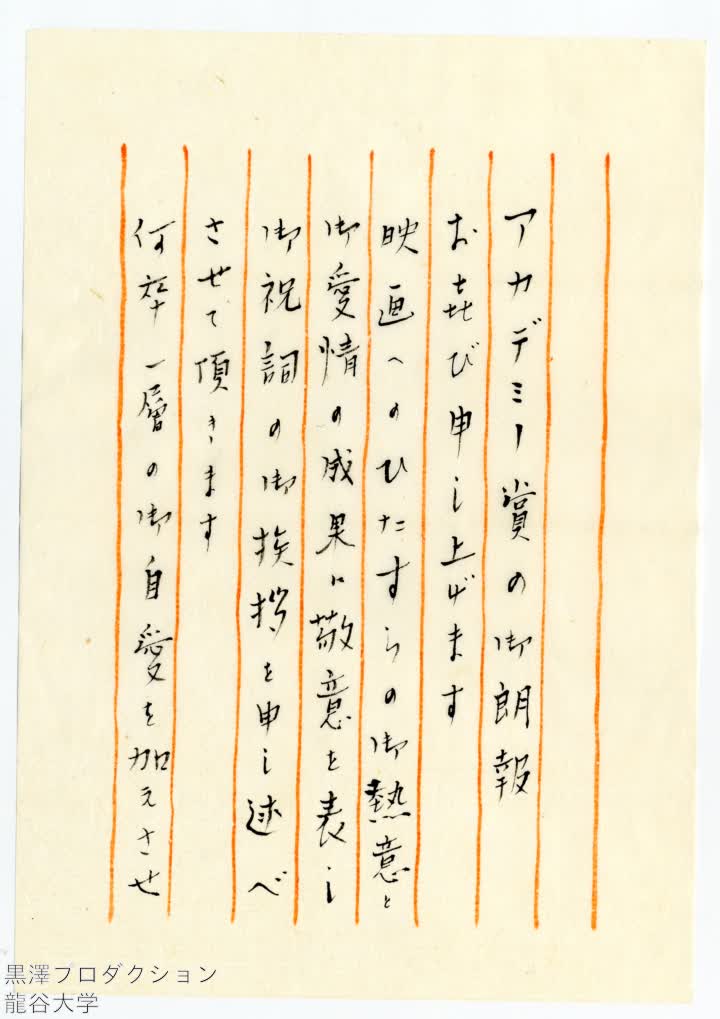 アカデミー賞の御朗報
お㐂び申し上げます
映画へのひたすらの御熱意と
御愛情の成果に敬意を表し
御祝詞の御挨拶を申し述べ
させて頂きます
何卒一層の御自愛を加えさせ
黒澤プロダクション
龍谷大学